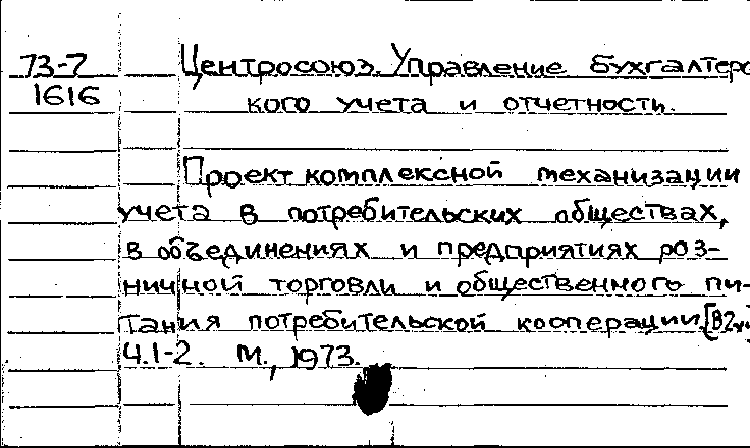 73-7 Центросоюз. Управление бухгалтерс
1616 кого учета и отчетности.
Проект комплексной механизации
учета в потребительских обществах,
в объединениях и предприятиях роз-
ничной торговли и общественного пи-
тания потребительской кооперации. [В 2х
Ч.1-2. М., 1973.